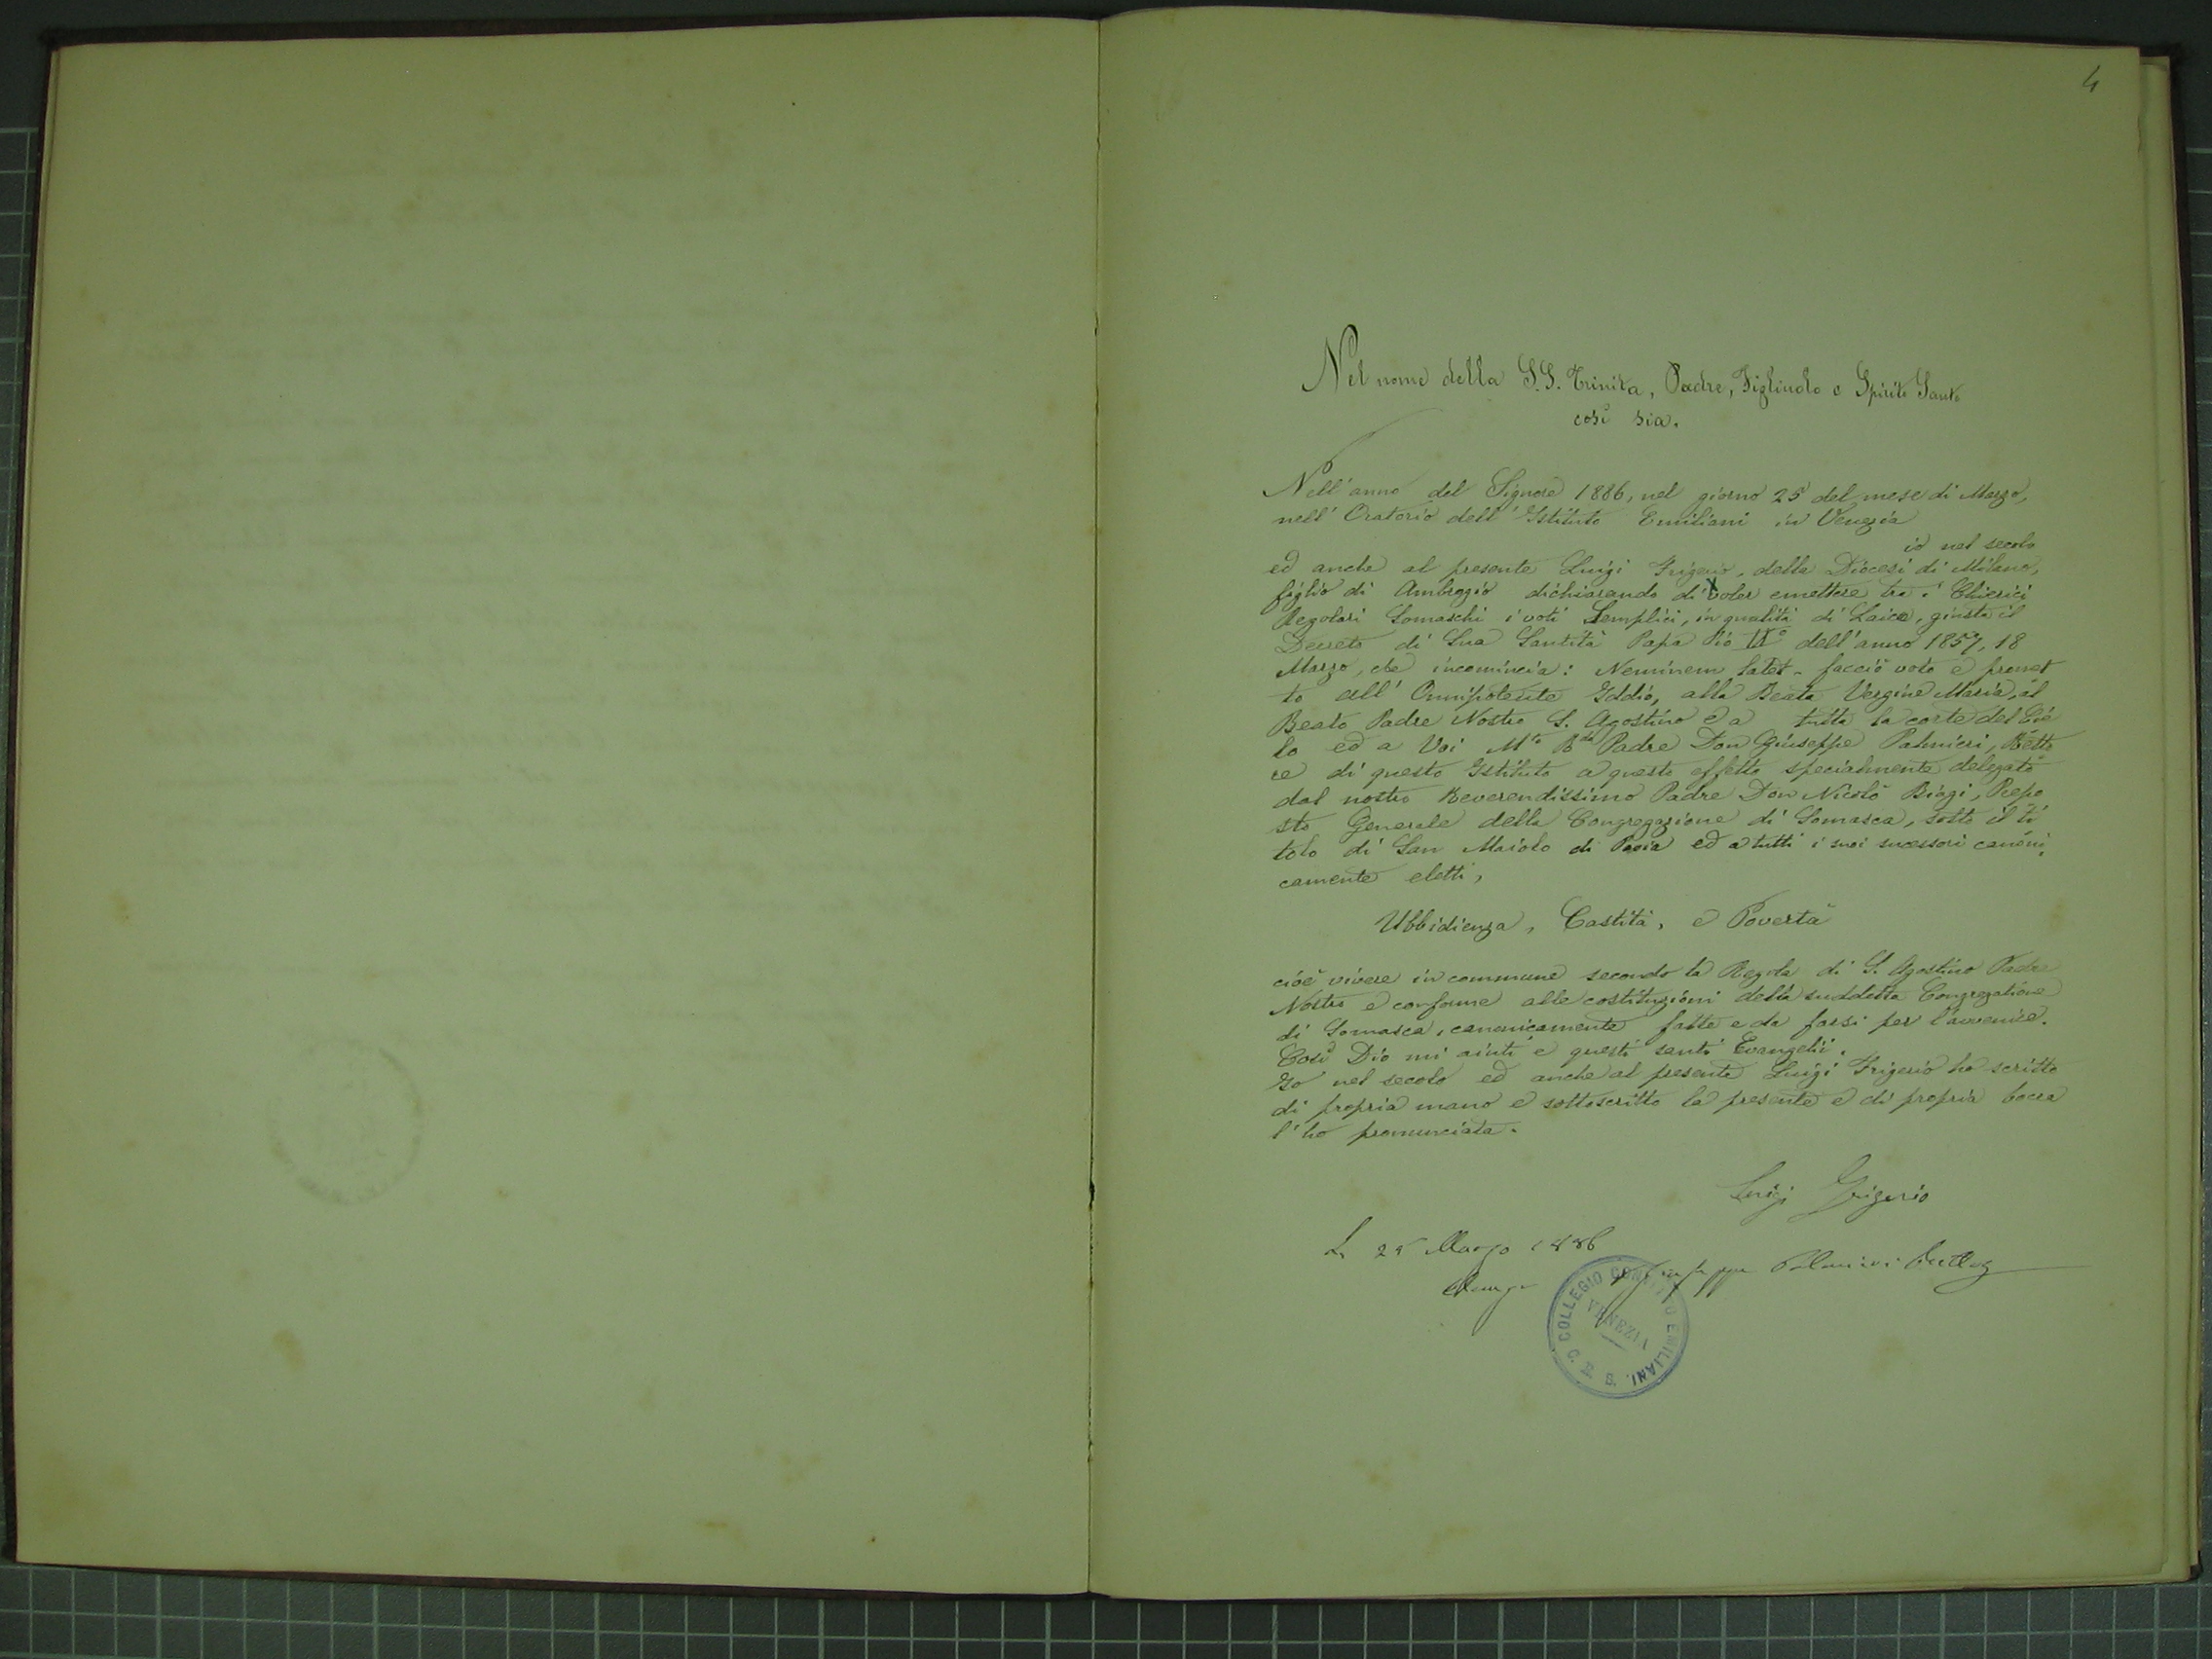 4
Nel nome della S.S. Trinita, Padre, Figliuolo e Spirito Santo
così sia.
Nell'anno del Signore 1886, nel giorno 25 del mese di Marzo,
nell'Oratorio dell'Istituto Emiliani in Venezia
io nel secolo
ed anche al presente Luigi Frigerio, della Diocesi di Milano,
figlio di Ambrogio dichiarando di voler emettere tra i Chierici
Regolari Somaschi i voti Semplici, in qualità di Laico, giusta il
Decreto di Sua Santità Papa Pio IX° dell'anno 1857, 18
Marzo, che incomincia: Neminem latet - faccio voto e promet
to all'Omnipotente Iddio, alla Beata Vergine Maria, al
Beato Padre Nostro S. Agostino e a tutta la corte del Cie
lo ed a Voi M.to R.do Padre Don Giuseppe Palmieri, Retto
re di questo Istituto a questo effetto specialmente delegato
dal nostro Reverendissimo Padre Don Nicolò Biagi, Prepo
sto Generale della Congregazione di Somasca, sotto il ti
tolo di San Maiolo di Pavia ed a tutti i suoi sucessori canoni,
camente eletti,
Ubbidienza, Castità, e Povertà
cioè vivere in commune secondo la Regola di S. Agostino Padre
Nostro e conforme alle costituzioni della suddetta Congregatione
di Somasca, canonicamente fatte e da farsi per l'avvenire.
Così Dio mi aiuti e questi santi Evangelii.
Io nel secolo ed anche al presente Luigi Frigerio ho scritto
di propria mano e sottoscritto la presente e di propria bocca
l'ho pronunciata.
Luigi Frigerio
Li 25 Marzo 1886
Giuseppe Palmieri Rettore
COLLEGIO CONVITTO EMILIANI
VENEZIA